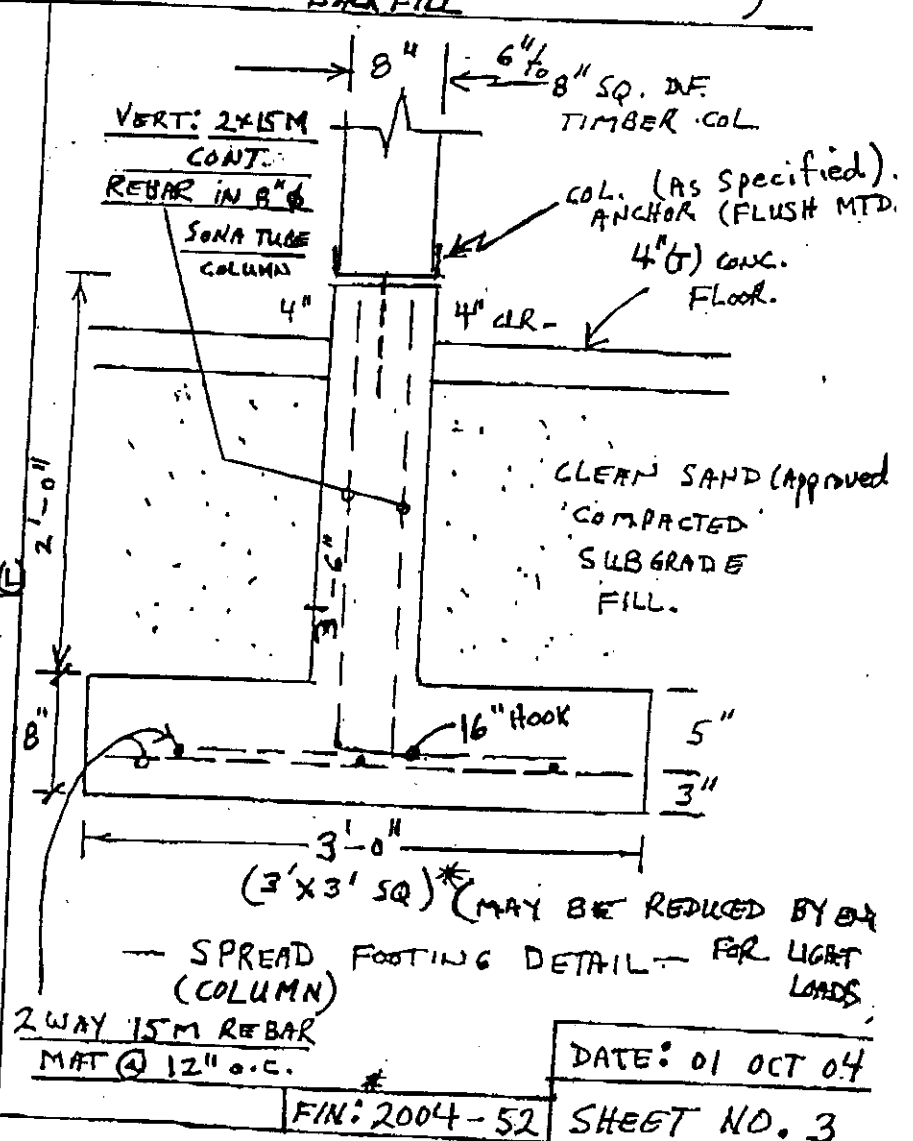 BACK FILL
8"
6" to
8" SQ. D.F.
TIMBER COL.
VERT: 2x15M
CONT.
REBAR IN 8"ϕ
SONA TUBE
COLUMN
COL. (As Specified).
ANCHOR (FLUSH MTD.
4"(T) CONC.
FLOOR.
4"
4" CLR-
2'-0"
CLEAN SAND (Approved
COMPACTED
SUBGRADE
FILL.
3'-6"
8"
16" HOOK
5"
3"
3'-0"
(3'x3' SQ)* (MAY BE REDUCED BY
— SPREAD FOOTING DETAIL — FOR LIGHT
(COLUMN)
LOADS
2 WAY 15M REBAR
MAT @ 12" o.c.
DATE: 01 OCT 04
*
FIN: 2004-52
SHEET NO. 3